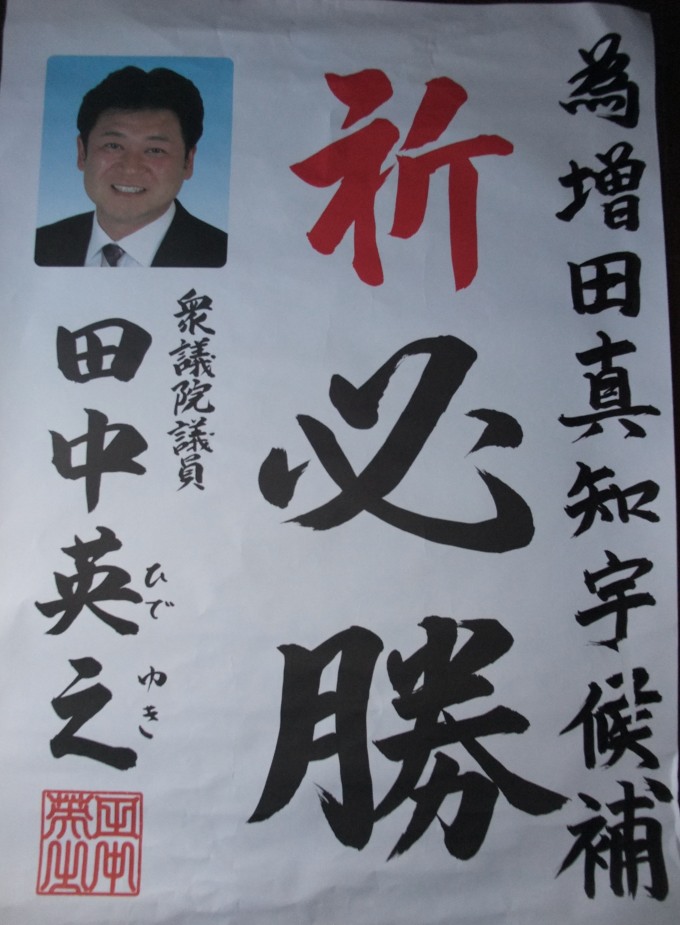 為増田真知宇候補
祈必勝
衆議院議員
田中英之
ひでゆき
田中英之